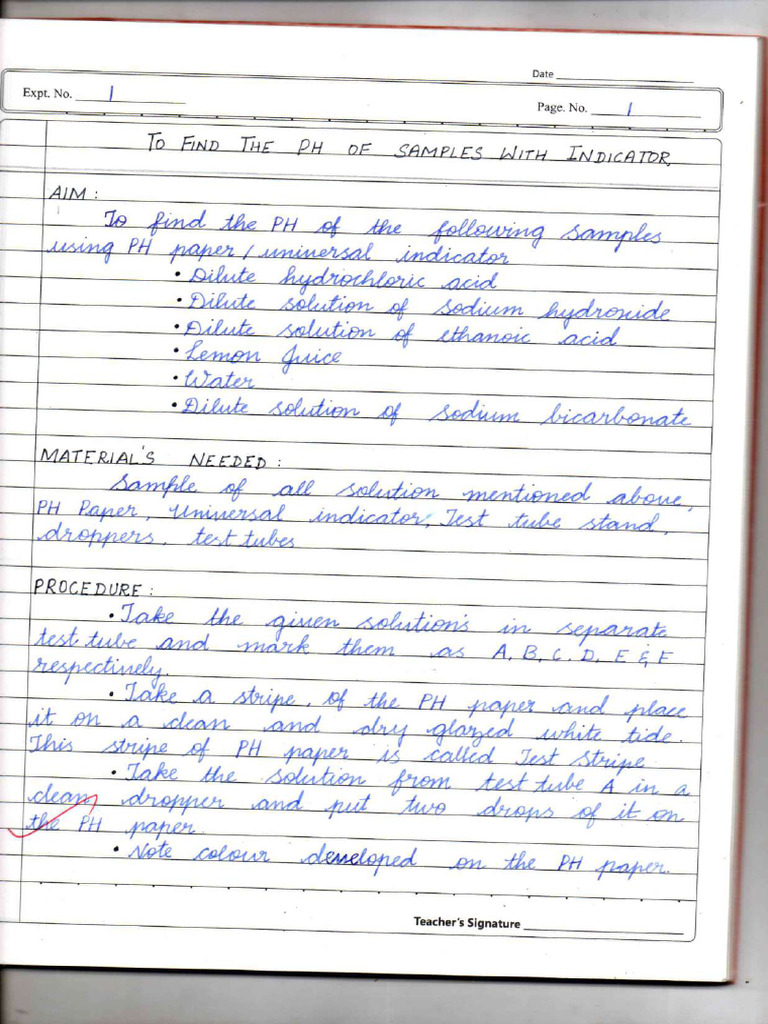 Date
Expt. No. 1
Page. No. 1
TO FIND THE PH OF SAMPLES WITH INDICATOR
AIM :
To find the PH of the following samples
using PH paper / universal indicator
• Dilute hydrochloric acid
• Dilute solution of sodium hydroxide
• Dilute solution of ethanoic acid
• Lemon Juice
• Water
• Dilute solution of sodium bicarbonate
MATERIAL'S NEEDED :
Sample of all solution mentioned above,
PH Paper, universal indicator, Test tube stand,
droppers, test tubes
PROCEDURE :
• Take the given solution's in separate
test tube and mark them as A, B, C, D, E & F
respectively.
• Take a stripe, of the PH paper and place
it on a clean and dry glazed white tide.
This stripe of PH paper is called Test stripe
• Take the solution from test tube A in a
clean dropper and put two drops of it on
the PH paper.
• Note colour developed on the PH paper.
Teacher's Signature